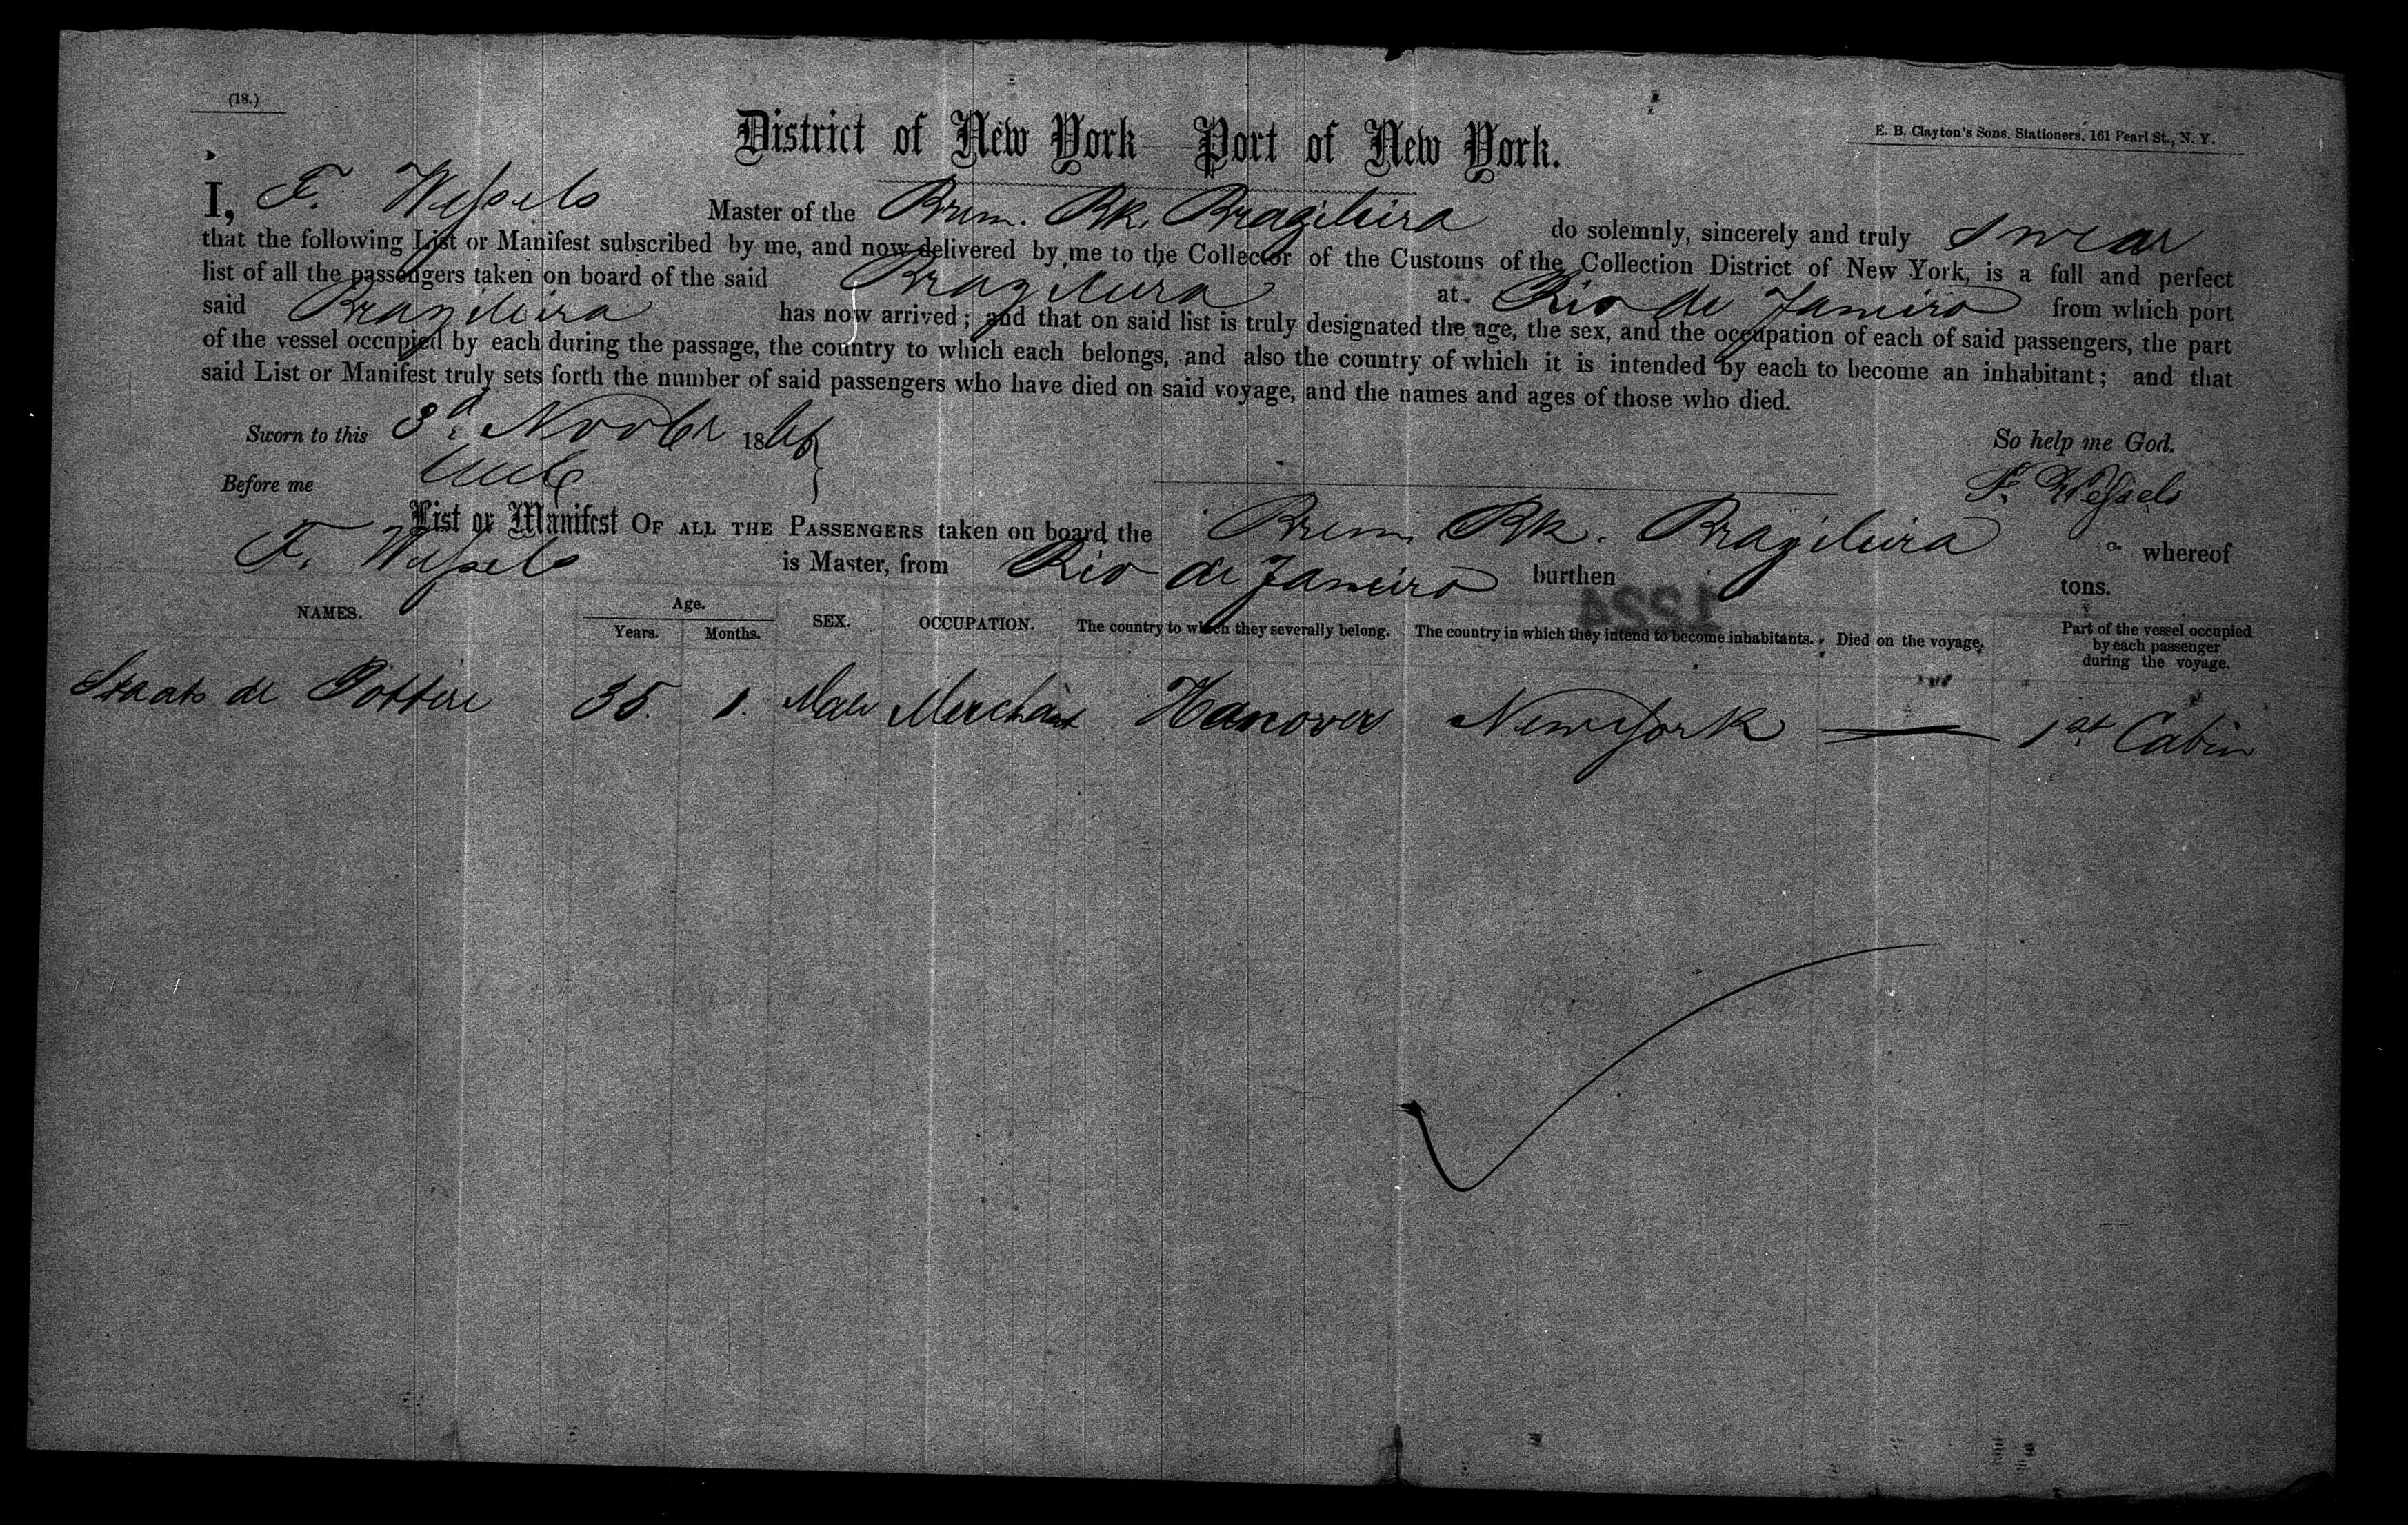 (18.)
District of New York Port of New York.
E. B. Clayton's Sons, Stationers, 161 Pearl St., N. Y.
I, F. Wessels Master of the Brem. Bk. Brazileira do solemnly, sincerely and truly swear
that the following List or Manifest subscribed by me, and now delivered by me to the Collector of the Customs of the Collection District of New York, is a full and perfect
list of all the passengers taken on board of the said Brazileira at Rio de Janeiro from which port
said Brazileira has now arrived; and that on said list is truly designated the age, the sex, and the occupation of each of said passengers, the part
of the vessel occupied by each during the passage, the country to which each belongs, and also the country of which it is intended by each to become an inhabitant; and that
said List or Manifest truly sets forth the number of said passengers who have died on said voyage, and the names and ages of those who died.
Sworn to this 3d Novbr 1866
So help me God.
Before me
F. Wessels
List or Manifest OF ALL THE PASSENGERS taken on board the Brem. Bk. Brazileira whereof
F. Wessels is Master, from Rio de Janeiro burthen tons.
1224
NAMES. Age. Years. Months. SEX. OCCUPATION. The country to which they severally belong. The country in which they intend to become inhabitants. Died on the voyage. Part of the vessel occupied by each passenger during the voyage.
Staats de Pottere 35. 1. Male Merchant Hanover New York — 1st Cabin